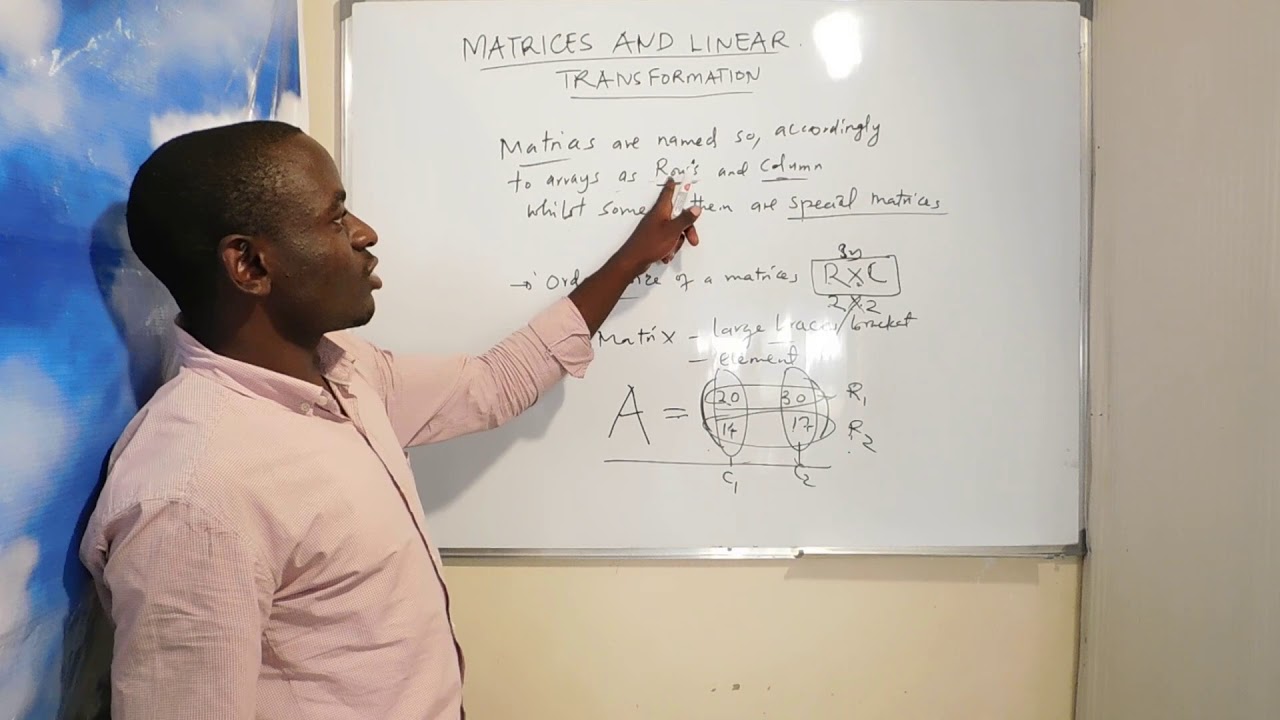 MATRICES AND LINEAR
TRANSFORMATION
Matrias are named so, accordingly
to arrays as Row's and Column
whilst some them are special matrices
→ of a matrices R x C
2 x 2
Matrix - large braces/bracket
- Element
A = 20 30 R1
17 R2
C1 C2